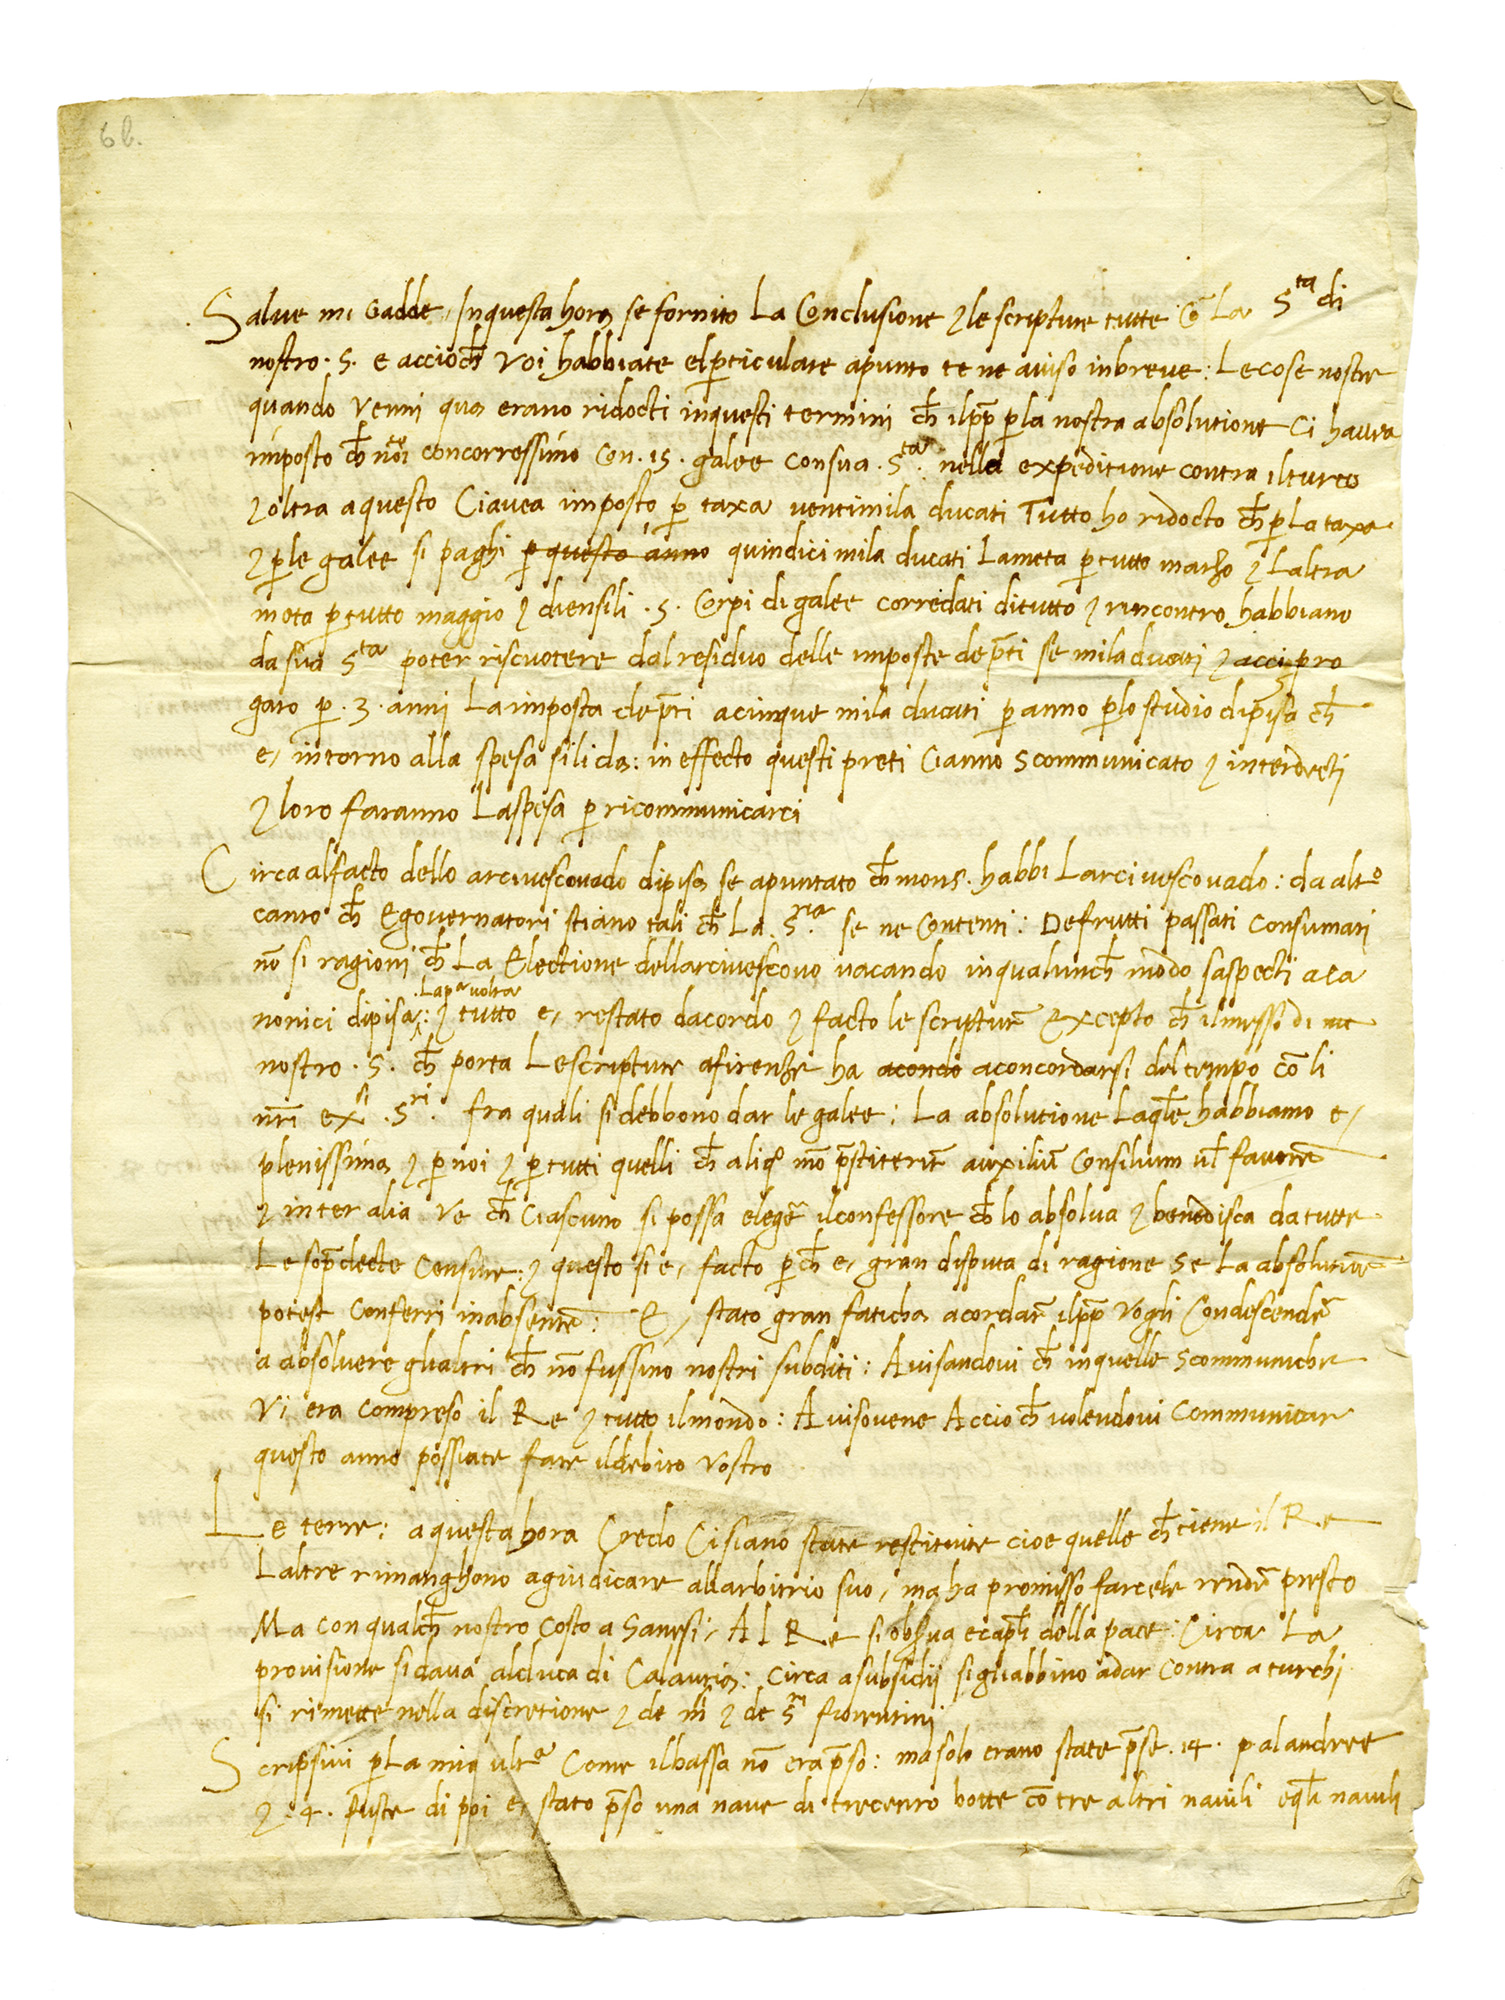 6b.
Salue mi Gadde, Inquesta hora se fornito La Conclusione & le scripture tutte cō La Sta di
nostro. S. e acciocħ voi habbiate el p̱ticulare apunto te ne auiso inbreue: Le cose nostre
quando venni qua erano ridocti inquesti termini cħ ilpp̄ p̱la nostra absolutione Ci hauea
imposto cħ noi concorressimo Con .15. galee Con sua .Sta. nella expeditione contra ilturco
& oltra aquesto Ciauea imposto p̱ taxa ventimila ducati Tutto ho ridocto cħ p̱ La taxa
& p̱le galee si paghi p̱ questo anno quindici mila ducati La meta p̱ tutto marzo & Laltra
meta p̱ tutto maggio & diensili .5. Corpi di galee corredati ditutto & rincontro habbiano
da sua Sta poter riscuotere dal residuo delle imposte de p̄ti se mila ducati & acci pro
gato p̱ .3. anni La imposta de p̄ti acinque mila ducati p̱ anno p̱lo studio dipisa cħ
e, intorno alla spesa silida: in effecto questi preti Cianno scommunicato & interdecti
& loro faranno Laspesa p̱ ricommunicarci
Circa alfacto dello arciuescouado dipisa se apuntato cħ mons. habbi Larciuescouado: da alto
canto cħ Egouernatori stiano tali cħ La .Sria. se ne Contenti: De frutti passati Consumati
nō si ragioni cħ La Electione dellarciuescouo uacando inqualuncħ modo saspecti aca
.La pa uolta
nonici dipisa: & tutto e, restato dacordo & facto le scripture Excepto cħ ilmesso di
nostro .S. cħ porta Le scripture afirenze ha acondo aconcordarsi del tempo cō li
nr̄i exsi .Sri. fra quali si debbono dar le galee: La absolutione Laqle habbiamo e,
plenissima & p̱ noi & p̱ tutti quelli cħ aliqo mo p̄stiterūt auxiliū Consilium ul fauorē
& inter alia ve cħ Ciascuno si possa elegē ilconfessore cħ lo absolua & benedisca da tutte
Le sop̄decte Censure: & questo si e, facto p̱cħ e, gran disputa di ragione se La absolutiōe
potest Conferri inabsentē: E, stato gran faticha acordarē ilpp̄ vogli Condescendē
a absoluere glialtri cħ nō fussino nostri subditi: Auisandoui cħ inquelle scommuniche
Vi era compreso il Re & tutto ilmondo: Auisouene Accio cħ uolendoui Communicare
questo anno possiate fare ildebito vostro
Le terre: a questa hora Credo Ci siano state restituite cioe quelle cħ tiene il Re
Laltre rimanghono agiudicare allarbitrio suo, ma ha promisso farcele rendē presto
Ma con qualcħ nostro Costo a Sanesi, Al Re si obs̄ua ecapli della pace: Circa La
prouisione sidaua alduca di Calauria: Circa asubsidii sigliabbino adar Contra aturchi
si rimette nella discretione & de & de Sri fiorentini
Scripsiui p̱ La mia ulta Come ilbassa nō era p̄so: ma solo erano state p̄se .14. palandree
& .4. fuste di poi e, stato p̄so una naue di trecento botte cō tre altri nauili eqli nauili